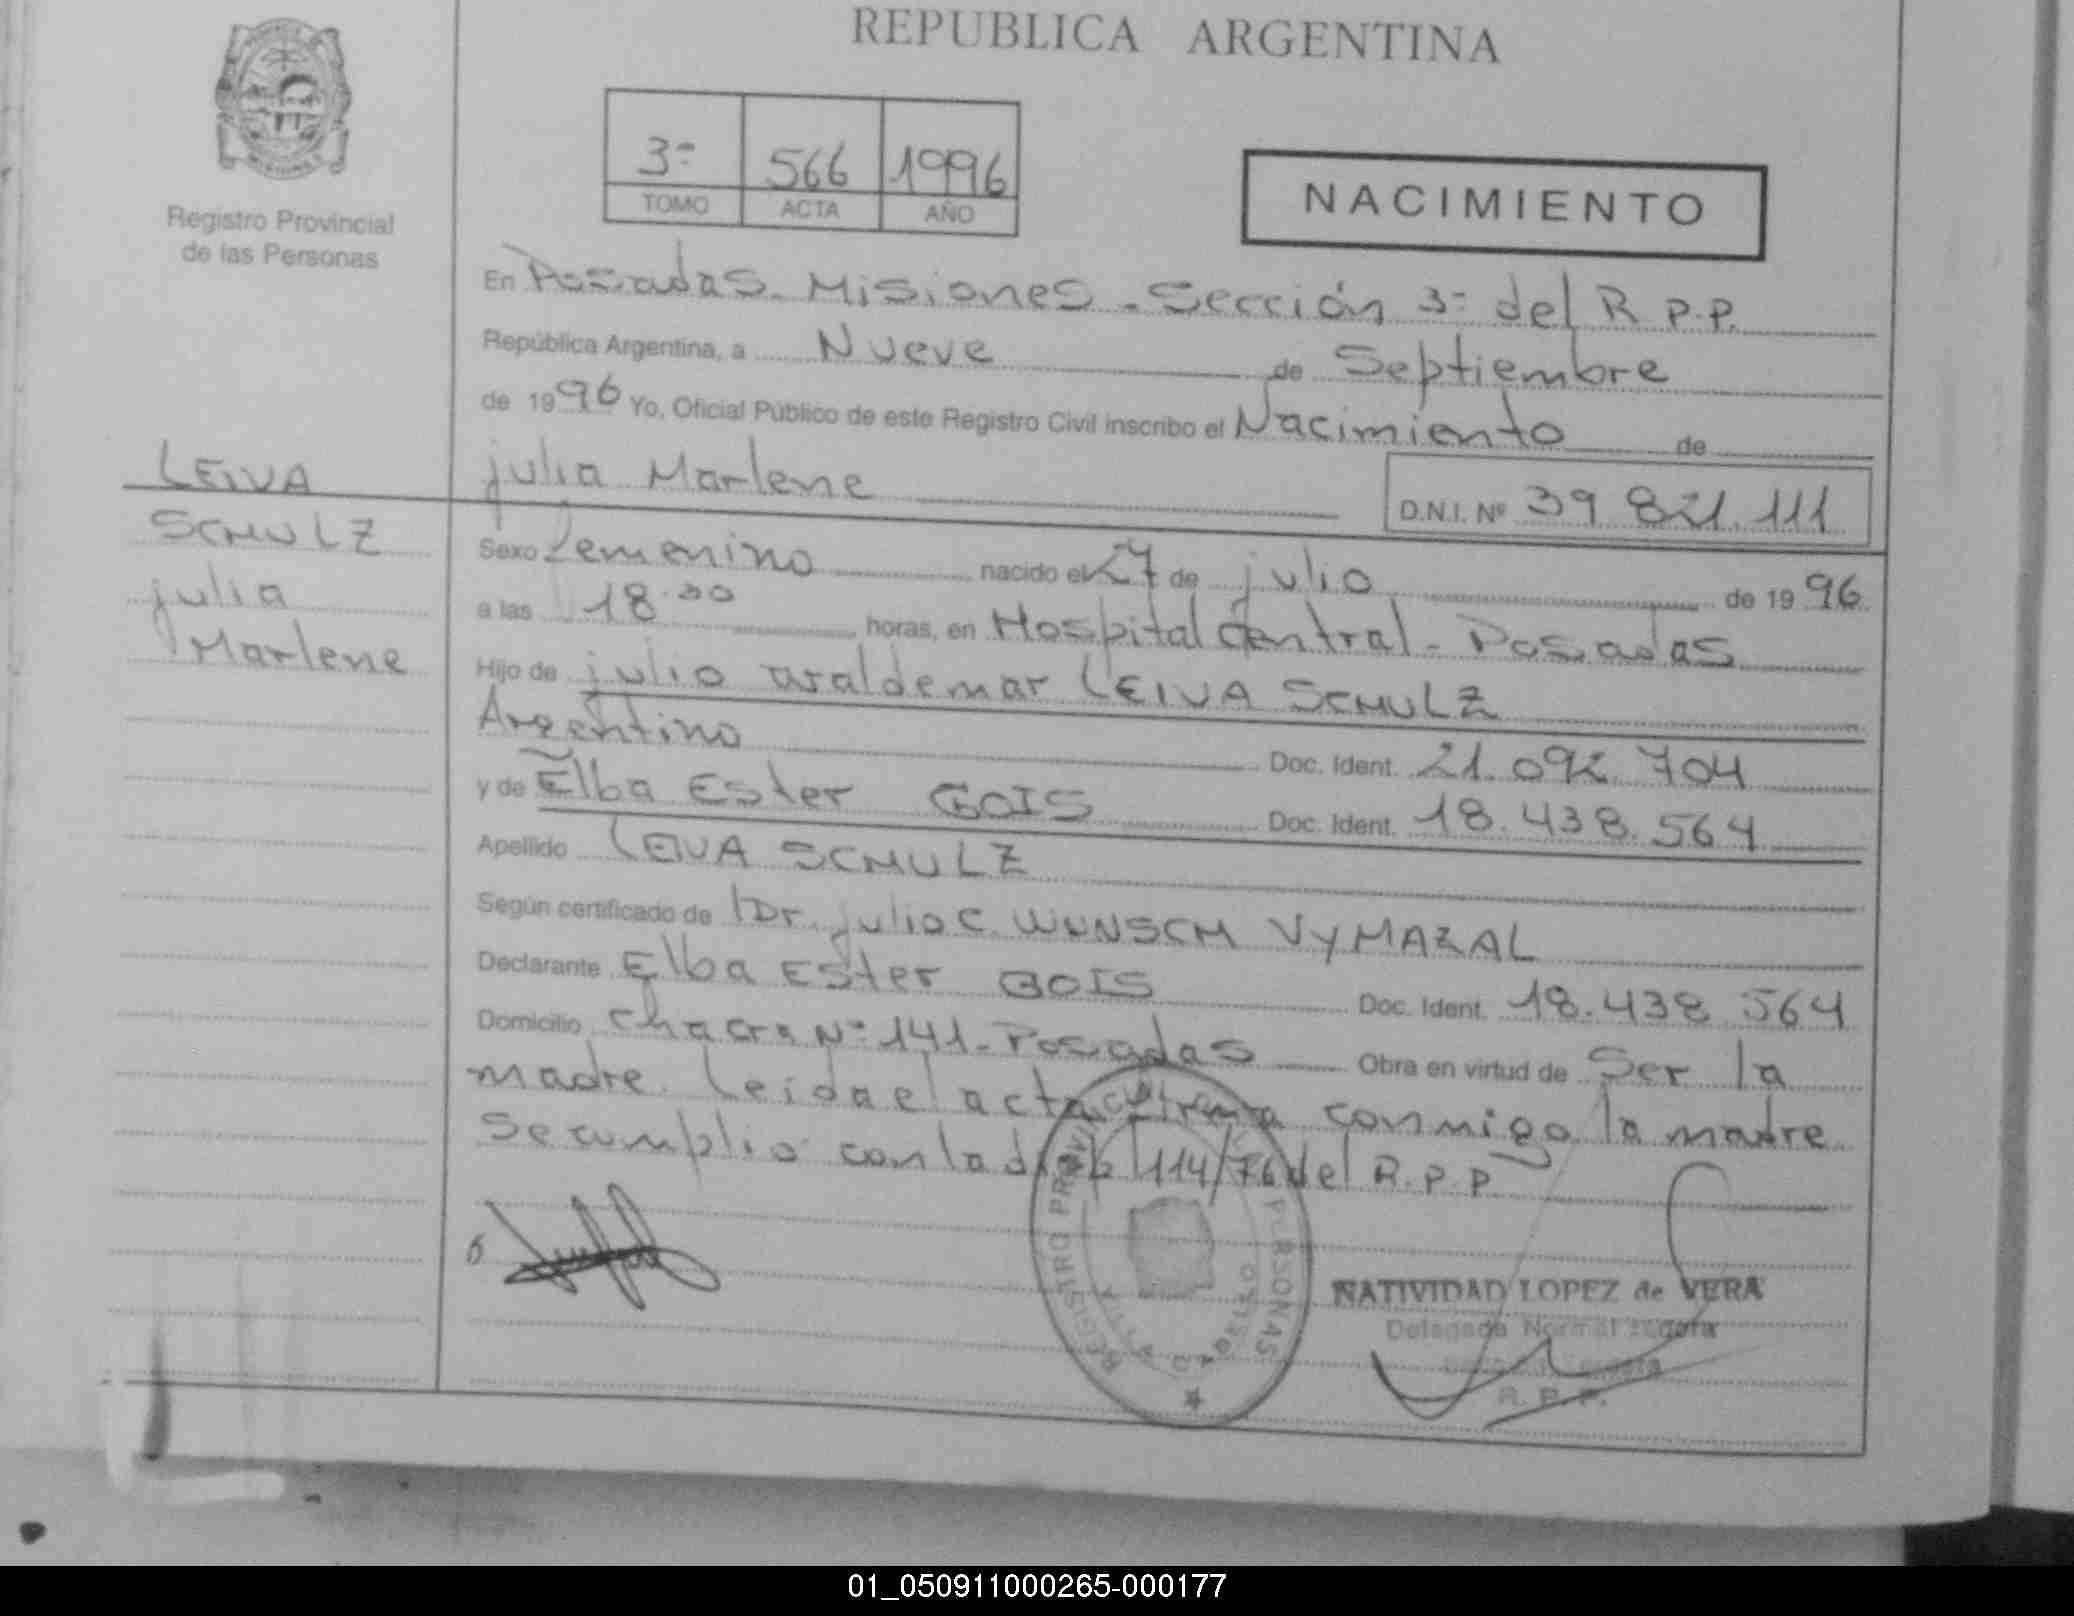 REPUBLICA ARGENTINA
3º 566 1996
TOMO ACTA AÑO
NACIMIENTO
Registro Provincial
de las Personas
En Posadas - Misiones - Sección 3º del R P.P.
República Argentina, a Nueve de Septiembre
de 1996 Yo, Oficial Público de este Registro Civil inscribo el Nacimiento de
julia Marlene D.N.I. Nº 39 821.111
LEIVA
SCHULZ
julia
Marlene
Sexo Femenino nacido el 27 de julio de 1996
a las 18.00 horas, en Hospital Central - Posadas
Hijo de julio Waldemar LEIVA SCHULZ
Argentino Doc. Ident. 21.092.704
y de Elba Ester GOIS Doc. Ident. 18.438.564
Apellido LEIVA SCHULZ
Según certificado de Dr. julio C. WUNSCH VYMAZAL
Declarante Elba Ester GOIS Doc. Ident. 18.438 564
Domicilio Chacra Nº 141 - Posadas Obra en virtud de Ser la
madre. Leida el acta firma conmigo la madre
Se cumplio con la 114/76 del R.P.P.
REGISTRO PERSONAS
POSADAS
NATIVIDAD LOPEZ de VERA
Delegada
R.P.P.
01_050911000265-000177